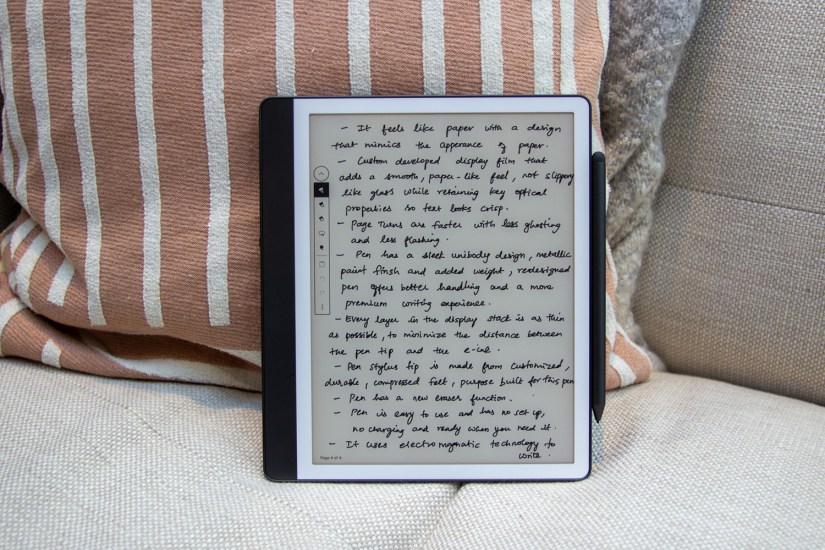 - It feels like paper with a design
that mimics the apperance of paper.
- Custom developed display film that
adds a smooth, paper-like feel, not slippery
like glass while retaining key optical
properties so text looks crisp.
- Page Turns are faster with less ghosting
and less flashing.
- Pen has a sleek unibody design, metallic
paint finish and added weight, redesigned
pen offers better handling and a more
premium writing experience.
- Every layer in the display stack is as thin
as possible, to minimize the distance between
the pen tip and the e-ink.
- Pen stylus tip is made from customized,
durable, compressed felt, purpose built for this pen
- Pen has a new eraser function.
- Pen is easy to use and has no set up,
no charging and ready when you need it.
- It uses electromagnatic technology to
write.
Page 4 of 4